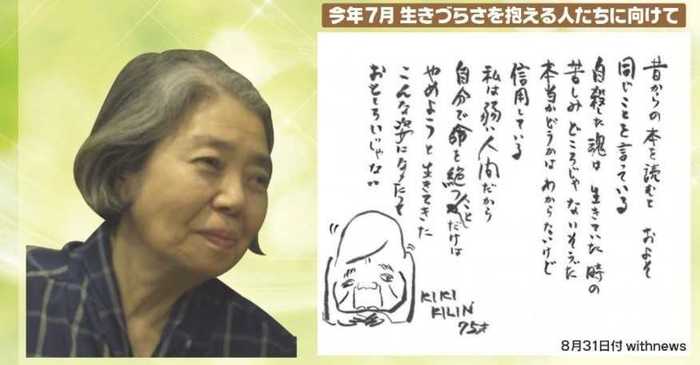 今年7月 生きづらさを抱える人たちに向けて
昔からの本を読むと およそ
同じことを言っている
自殺した魂は 生きていた時の
苦しみどころじゃないそうだ
本当かどうかは わからないけど
信用している
私は弱い人間だから
自分で命を絶つことだけは
やめようと 生きてきた
こんな姿になったって
おもしろいじゃない
KIKI
KILIN
75才
8月31日付 withnews